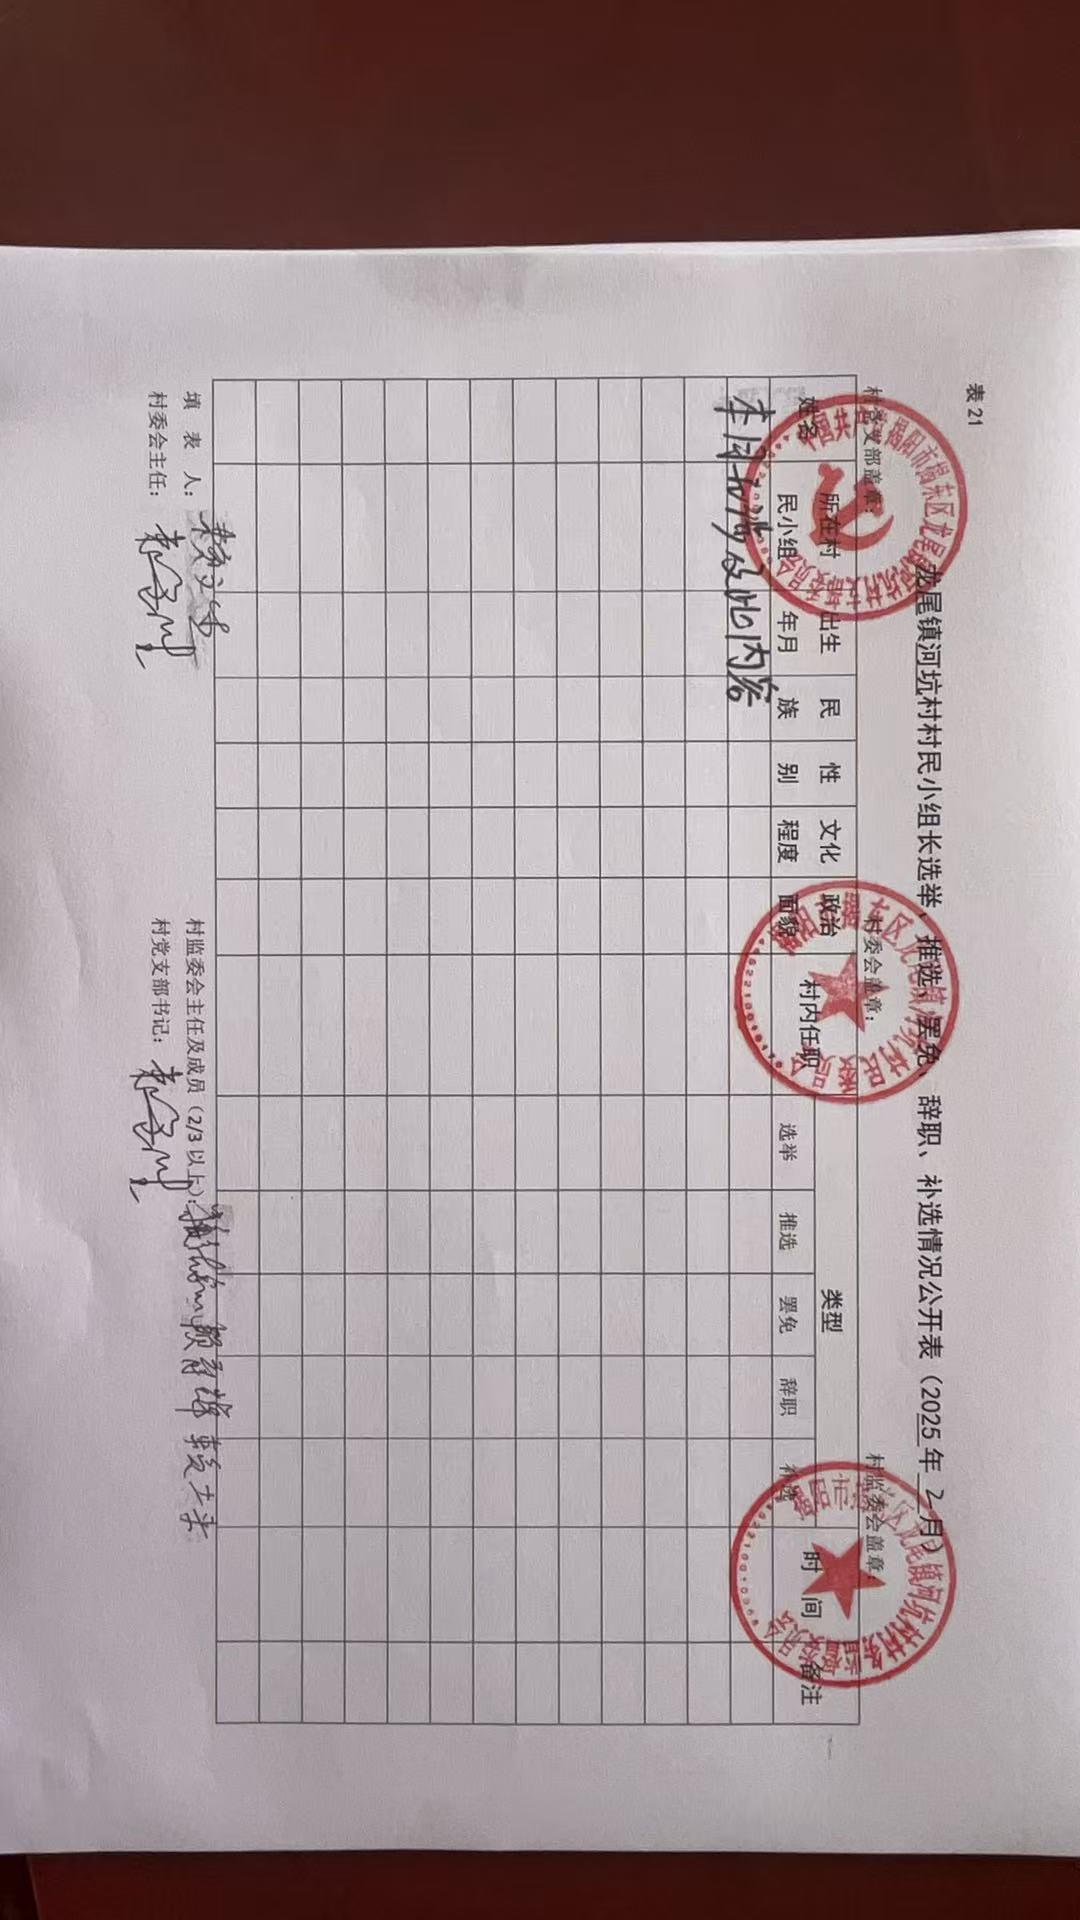 表 21
龙尾镇河坑村村民小组长选举、推选、罢免、辞职、补选情况公开表（2025 年 2 月）
村党支部盖章： 村委会盖章： 村监委会盖章：
姓名 所在村民小组 出生年月 民族 性别 文化程度 政治面貌 村内任职 类型 时间 备注
选举 推选 罢免 辞职 补选
本月无涉及此内容
填 表 人： 村监委会主任及成员（2/3 以上）：
村委会主任： 村党支部书记：